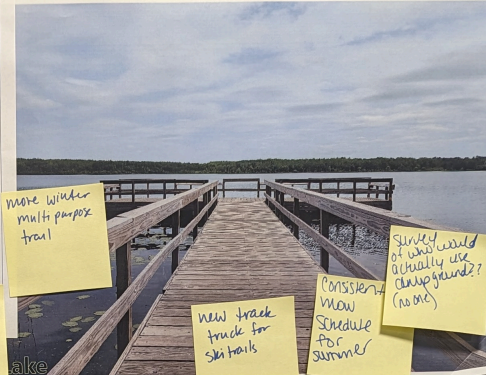 more winter
multi purpose
trail
new track
truck for
ski trails
Consistent
mow
schedule
for
summer
Survey
of who would
actually use
campground??
(no one)
ake